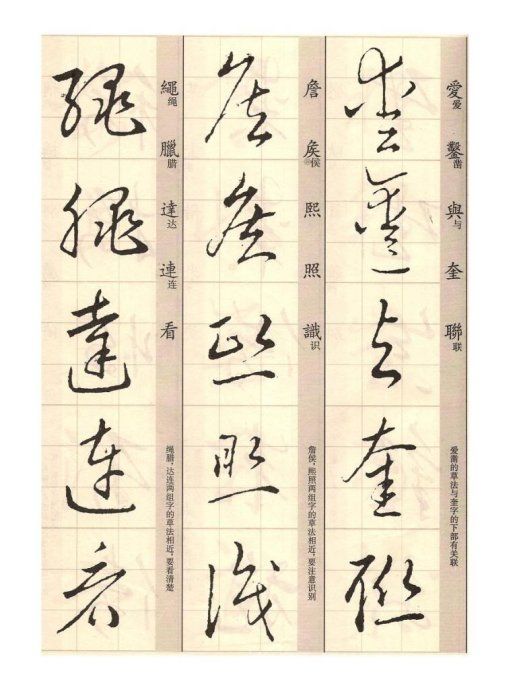 愛爱 鑿凿 與与 奎 聯联
爱凿的草法与奎字的下部有关联
愛
鑿
與
奎
聯
詹 矦侯 熙 照 識识
詹侯，熙照两组字的草法相近，要注意识别
詹
矦
熙
照
識
繩绳 臘腊 達达 連连 看
绳腊，达连两组字的草法相近，要看清楚
繩
臘
達
連
看